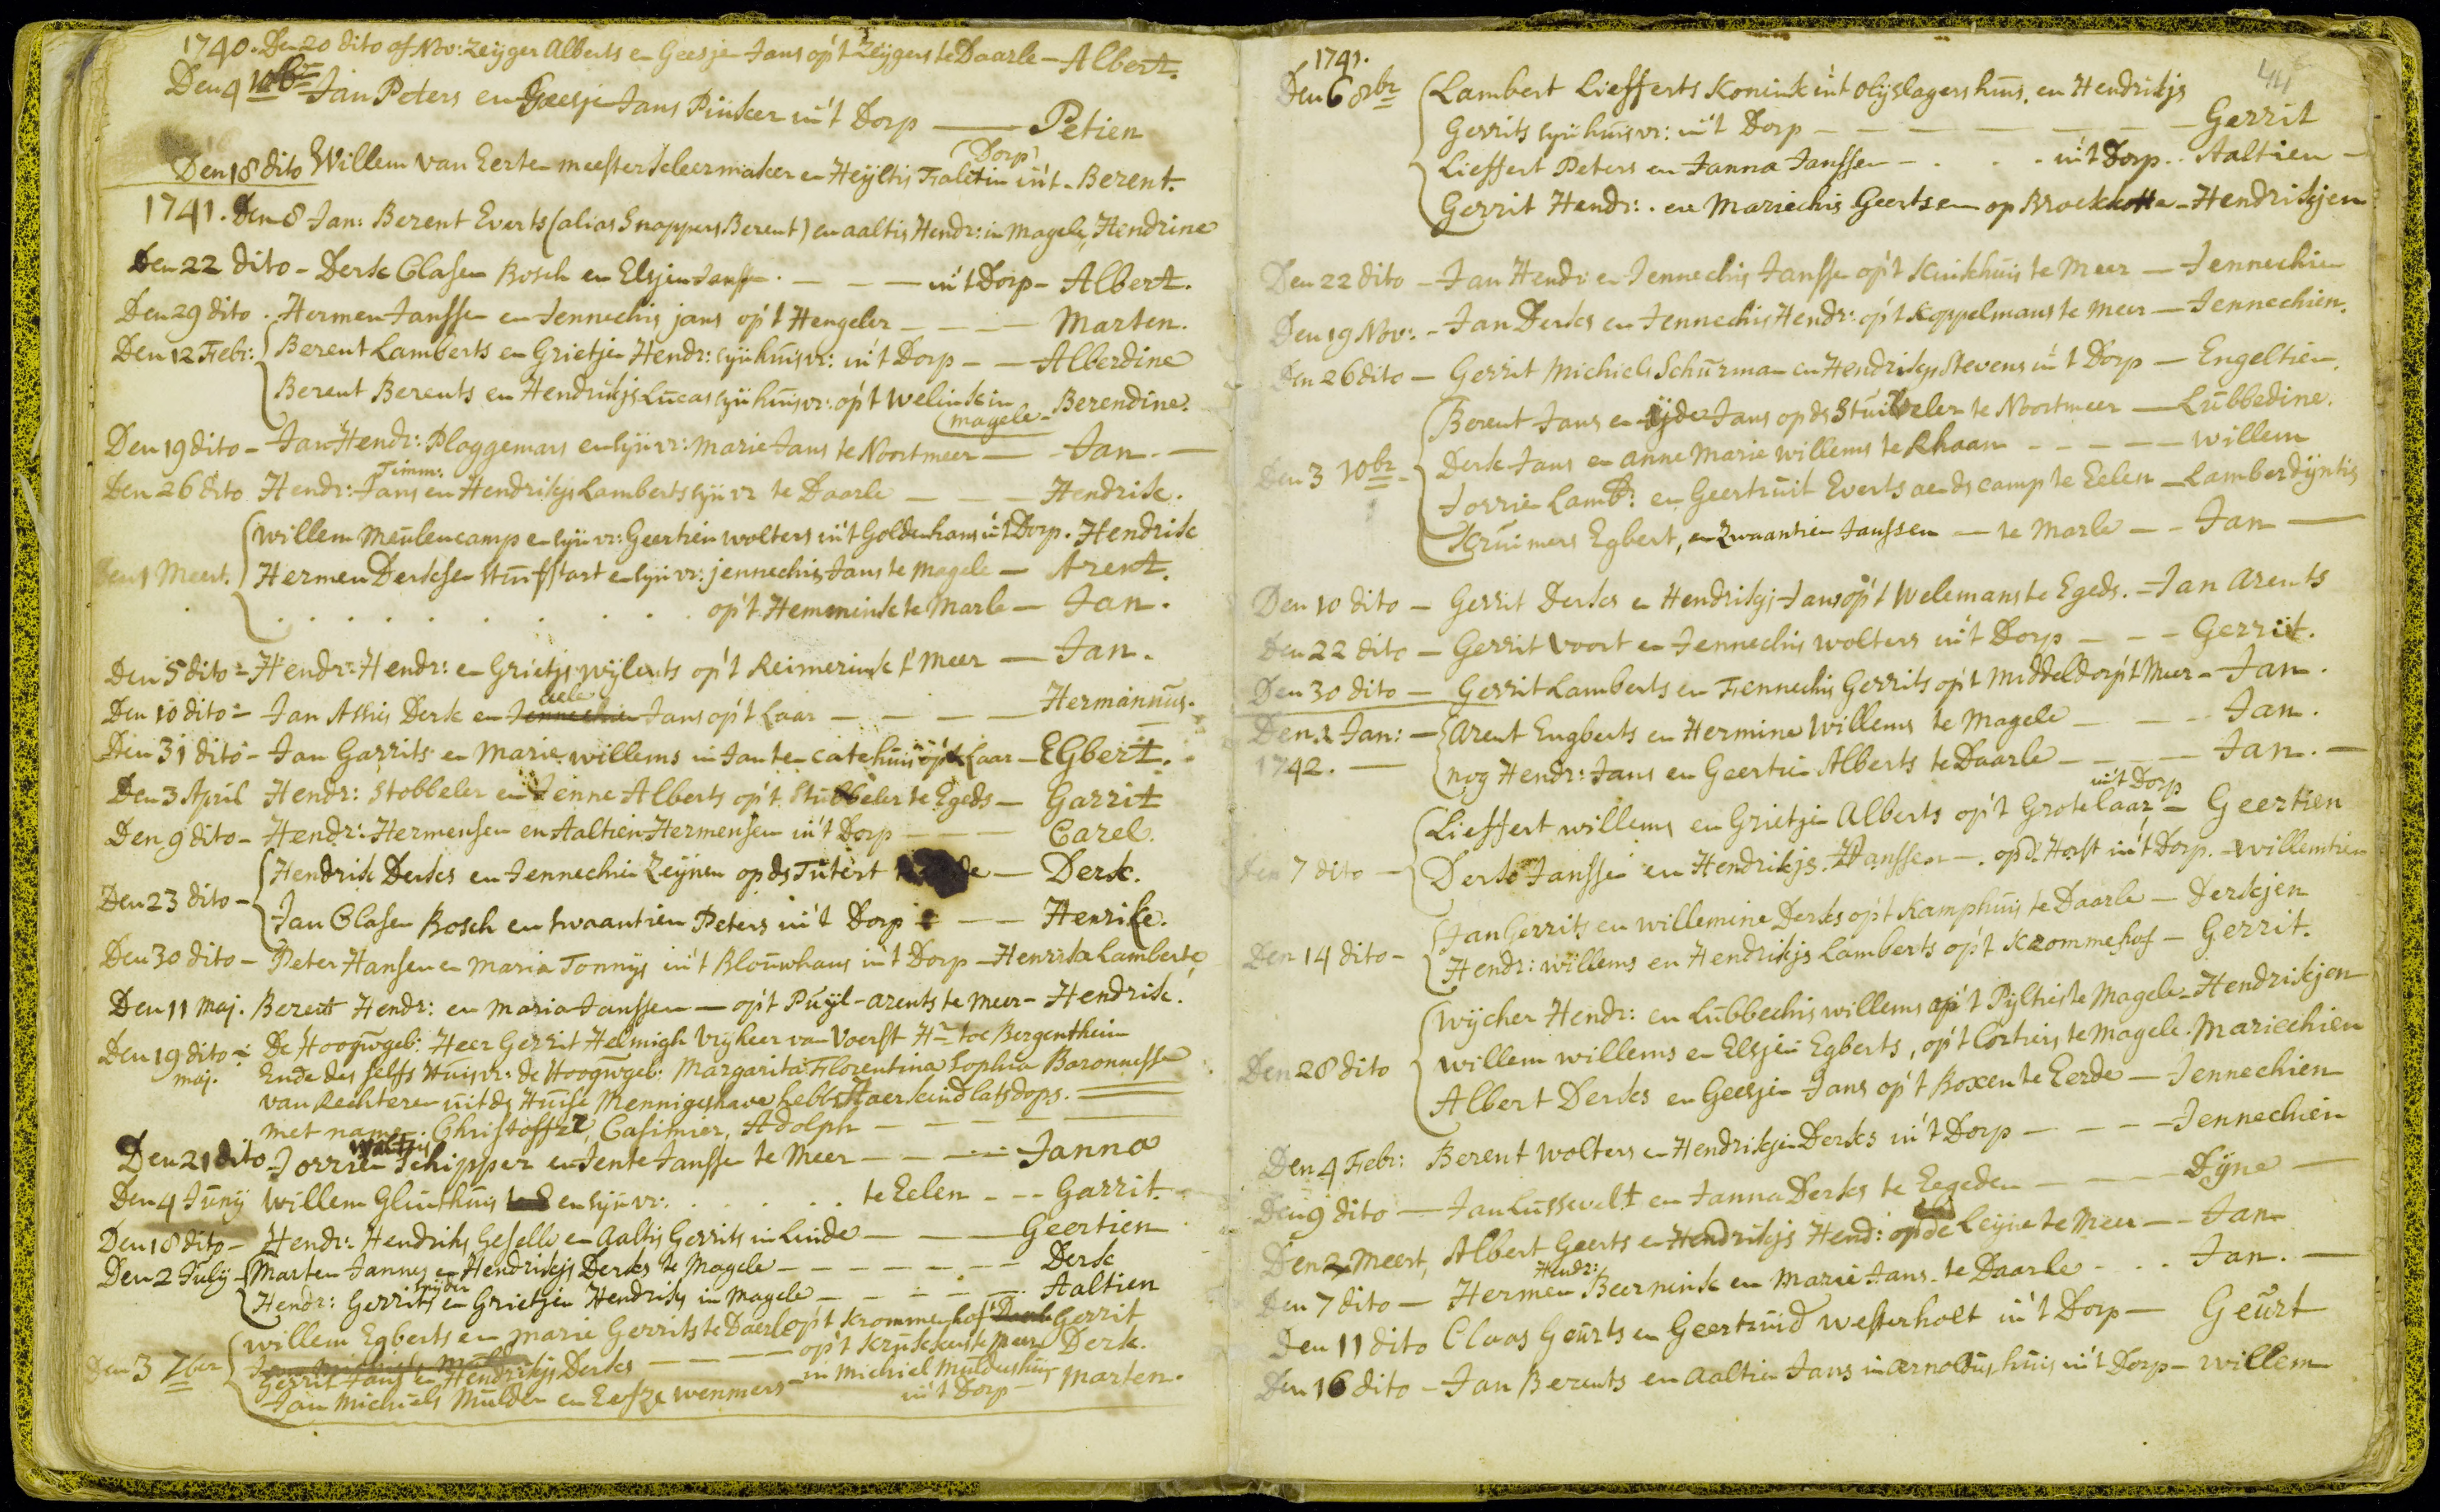 1740. Den 20 dito of Nov: Zeijger Alberts en Geesje Jans op't Zeijgers te Daarle - Albert.
Den 4 10br Jan Peters en Geesje Jans Pinker in't Dorp — Petien
(Dorp)
Den 18 dito Willem van Eerten meester kleermaker en Heijltis Faletin in't - Berent.
1741. Den 8 Jan: Berent Everts (alias Snoppers Berent) en aaltis Hendr: in Magele, Hendrine
Den 22 dito - Derk Clasen Bosch en Elsjen Janssen - - - in't Dorp - Albert.
Den 29 dito . Hermen Janssen en Jennechis jans op't Hengeler - - - Marten.
Den 12 Febr: Berent Lamberts en Grietje Hendr: sijn huisvr: in't Dorp - - Alberdine
Berent Berents en Hendrikjs Lucas sijn huisvr: op't Welink in Berendine.
(magele -
Den 19 dito - Jan Hendr: Plaggemars en sijn vr: Marie Jans te Noortmeer — Jan. —
Timm:
Den 26 dito Hendr: Jans en Hendrikjs Lamberts sijn vr te Daarle - - - Hendrik.
Willem Meulencamp en sijn vr: Geertien wolters in't Goldenhans in't Dorp. Hendrik
Den 1 Meert. Hermen Derksen Stuifstart en sijn vr: jennechis Jans te Magele — Arent.
. . . . . . . . op't Hemmink te Marle — Jan.
Den 5 dito - Hendr: Hendr: en Grietjs wijlents op't Reimerink t' Meer — Jan.
aele
Den 10 dito - Jan Assis Derk en Jennechien Jans op't Laar — — — Hermannus.
Den 31 dito - Jan Garrits en Marie willems in Janten catehuis op't Laar - EGbert.
Den 3 April Hendr: Stobbeler en Jenne Alberts op't Stubbeler te Egede — Garrit
Den 9 dito - Hendr: Hermensen en Aaltien Hermensen in't Dorp - - - Carel.
Hendrik Derks en Jennechie Zeijnen op ds Tutert — Derk.
Den 23 dito -
Jan Clasen Bosch en swaantien Peters in't Dorp - - Henrike.
Den 30 dito - Peter Hansen en Maria Tonnijs in't Blouwhans in't Dorp - Henrika Lamberte
Den 11 Maj. Berent Hendr: en Maria Janssen — op't Puijl-arents te Meer - Hendrik.
Den 19 dito - De Hoogwgeb: Heer Gerrit Helmigh Vrijheer van Voerst Hr toe Bergentheim
maj. Ende des selfs Huisvr: de Hoogwgeb: Margarita Florentina Sophia Baronnesse
van Rechteren uit ds Huise Mennigeshave hebbe Haer kind lats dops.
met name. Christoffel, Casimier, Adolph - - - -
Waltijs
Den 21 dito Jorrien Schipper en Jente Janssen te Meer - - - - Janna
Den 4 Junij Willem Glinthuis en sijn vr: . . . . te Eelen - - Garrit.
Den 18 dito - Hendr: Hendriks Geselle en Aaltis Gerrits in Linde - - - Geertien
Den 2 Julij - Marten Jannes en Hendrikjs Derks te Magele - - - - - Derk
snijder
Hendr: Gerrits en Grietjen Hendriks in Magele - - - - - Aaltien
willem Egberts en marie Gerrits te Daarle op't Krommenhof Gerrit
op't Krukkert te Meer Derk.
Den 3 7ber Gerrit Jans en Hendrikjs Derks - - - in Michiel Mulders huis
Jan Michiels Mulder en Eesze wenmers in't Dorp - Marten.
1741. 44
Den 6 8br Lambert Liefferts Konink in't olijslagers huis, en Hendrikjs
Gerrits sijn huisvr: in't Dorp - - - - - Gerrit
Lieffert Peters en Janna Janssen - . . . in't Dorp . . Aaltien -
Gerrit Hendr: . en Mariechis Geertsen op Broekkotte - Hendrikjen
Den 22 dito - Jan Hendr: en Jennechis Janssen op't Kinkhuis te Meer — Jennechien
Den 19 Nov: - Jan Derks en Jennechis Hendr: op't Koppelmans te meer — Jennechien.
Den 26 dito - Gerrit Michiels Schurman en Hendrikjs Stevens in't Dorp — Engeltien.
Berent Jans en ijde Jans op ds Stuivveler te Noortmeer — Lubbedine.
Den 3 10br - Derk Jans en anne Marie willems te Rhaan - - - - willem
Jorrie Lamb: en Geertruit Everts aen ds camp te Eelen — Lamberdijntis
Kruimers Egbert, en Zwaantien Janssen — te Marle - - Jan —
Den 10 dito - Gerrit Derks en Hendrikjs Jans op't Welemans te Egede. - Jan Arents
Den 22 dito - Gerrit Voort en Jennechis wolters in't Dorp - - - Gerrit.
Den 30 dito — Gerrit Lamberts en Fennechis Gerrits op't Middeldorp t' Meer - Jan.
Den 1 Jan: - Arent Engberts en Hermine Willems te Magele - - - Jan.
1742. — nog Hendr: Jans en Geertie Alberts te Daarle - - - Jan. —
in't Dorp
Lieffert willems en Grietje Alberts op't Grote laar, - Geertien
Den 7 dito - Derk Janssen en Hendrikjs. Hanssen - . op d' Horst in't Dorp. - Willemtien
Jan Gerrits en willemine Derks op't Kamphuis te Daarle — Derkjen
Den 14 dito -
Hendr: willems en Hendrikjs Lamberts op't Krommehof — Gerrit.
Wijcher Hendr: en Lubbechis willems op't Pijltris te Magele - Hendrikjen
Den 28 dito willem willems en Elsjen Egberts, op't Cortriers te Magele . Mariechien
Albert Derks en Geesje Jans op't Boxen te Eerde — Jennechien
Den 4 Febr: Berent wolters en Hendrikjen Derks in't Dorp - - - - Jennechien
Den 9 dito — Jan Lussevelt en Janna Derks te Eegeden - - - - Dijne —
Den 2 Meert, Albert Geerts en Hendrikjs Hend: op de Leijne te Meer — - Jan
Hendr:
Den 7 dito — Hermen Beernink en Marie Jans - te Daarle - . . Jan. —
Den 11 dito Claas Geurts en Geertruid Westerholt in't Dorp — Geurt
Den 16 dito - Jan Berents en Aaltie Jans in Arnoldus huis in't Dorp - willem